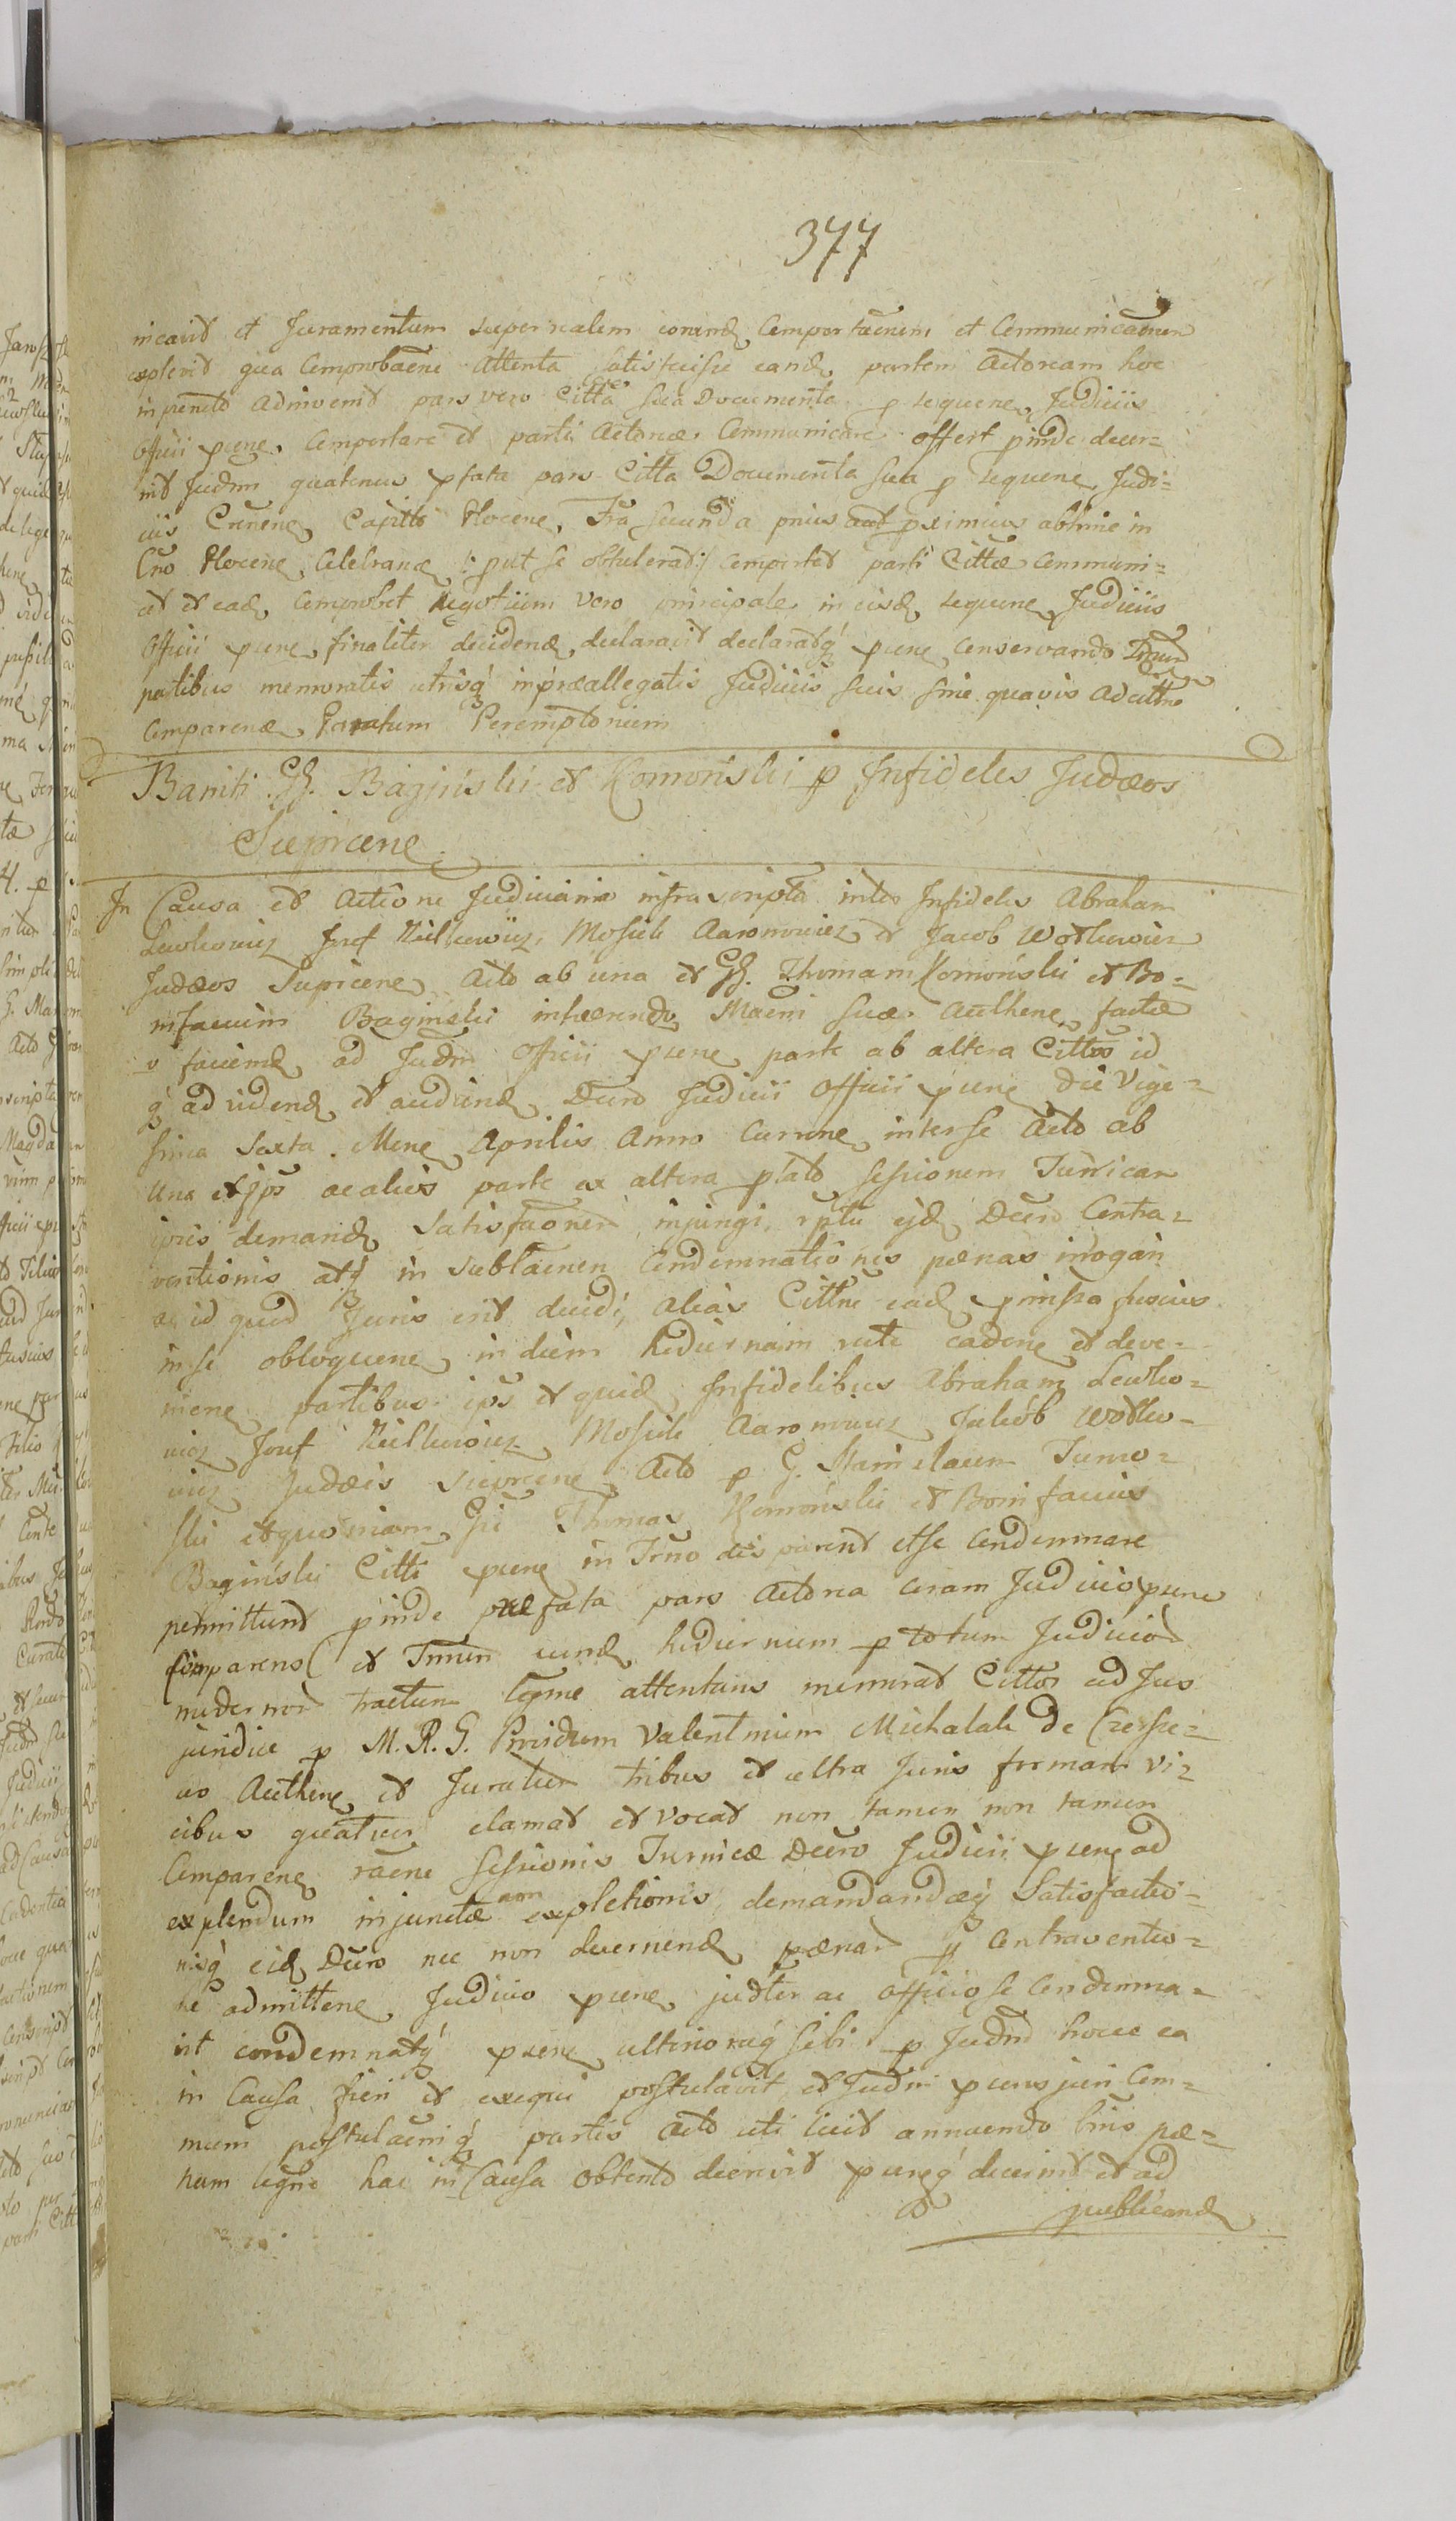 377
nicavit et Juramentum super realem eorund Comportaõnem et Communicaõnem
explevit qua Comprobaõne attenta satisfecisse eand partem Actoream hoc
in puncto adinvenit pars vero Citta sua Documenta p sequene Judiciis
Officii psene Comportare et parti Actoreæ Communicare offert pinde decer=
nit Judm quatenus pfata pars Citta Documenta sua p sequene Judi=
ciis Capitti Plocene, Fra Secunda prius aut pximius abhinc in
Plocene Celebrand /: put se obtulerat:/ comportet parti Cittæ Communi=
cet et ead Comprobet Negotium vero principale in eisd sequene Judiciis
Officii psene finaliter decidend declaravit declaratq psene conservando
partibus memoratis utrisq in præallegatis Judiciis suis sine quavis adcittne
comparend Peremptorium
Baniti GG. Baginski et Komoński p Infideles Judæos
Sieprcene
In Causa et Actione Judiciaria infrascripta inter Infideles Abraham
Lewkowicz Josef Mosiek Aaronowicz et Jacob Wołkowicz
Judæos Sieprcene Acto ab una et GG. Thomam Komoński et Bo=
nifacium Baginski inhærendo suæ Authene factæ
v faciend ad Judm Officii psene parte ab altera Cittos id
q ad vidend et audiend Decro Judicii Officii psene die Vige=
sima Sexta Mene Aprilis Anno Currene inter se Acto ab
una et ips ac alios parte ex altera plato sessionem Turricar
ipsis demand Satisfaõnem injungi, rptu ejd Decro Contra=
ventionis atq in Condemnationis pœnas irrogari
ac id quod Juris erit decidi, alias Cittne ead pmissa fusius
in se obloquene in diem hodiernam rite cadene et deve=
niene partibus ips et quid Infidelibus Abraham Lewko=
wicz Josef Mosiek Aaronowicz Jakob Wołko=
wicz Judæis Sieprcene Acto p G. Stanislaum
ski et quoniam Gsi Thomas Komoński et Bonifacius
Baginski Citti psene in Trno dis parent etse condemnare
permittunt pinde præfata pars Actorea coram Judicio psene
comparens et Tmin eund hodiernum p totum Judicior
modernor tractum legme attentans memorat Cittos ad Jus
juridice p M. R. G. Providum Valentinum Michalak de
vo Authene et Juratum tribus et ultra Juris formam vi=
cibus quatuor clamat et vocat non tamen non tamen
Comparene raõne Sessionis Turricæ Decro Judicii psene ad
explendum injunctæ non expletionis, demandandæq Satisfactio=
nisq eid Decro nec non decernend pœnar p Contraventio=
ne admittene Judicio psene judter ac officiose condemna=
vit condemnatq psene ulteriorag sibi p Judm hocce ea
in Causa fieri et exequi postulavit et Judm psens juri Com=
muni postulaõniq partis Acto uti licit annuendo pæ=
nam hac in Causa obtento decrevit pseneq decernit et ad
publicand